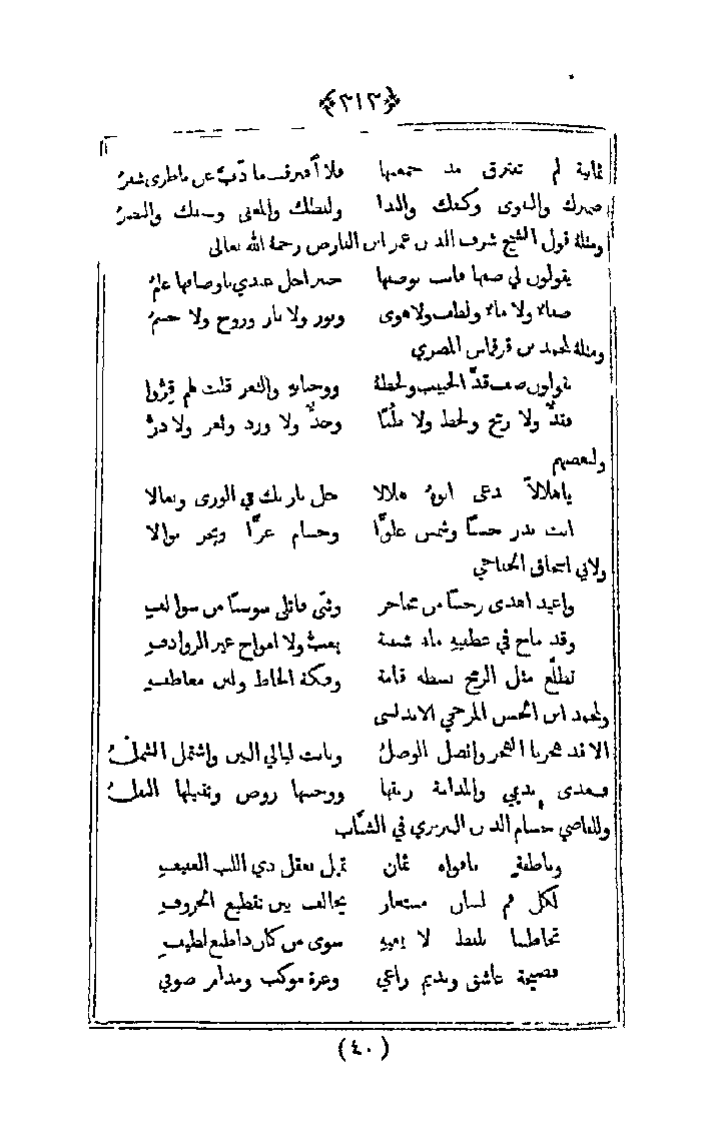 ﴿٣١٣﴾
ثمانية لم تفترق مذ جمعتها فلا افترقت ما ذبَّ عن ناظري شفرُ
ضميرك والتقوى وكفك والندا ولفظك والمعنى وسيفك والنصرُ
ومثلهُ قول الشيخ شرف الدين عمر ابن الفارض رحمهُ الله تعالى
يقولون لي صفها فانت بوصفها خبير اجل عندي باوصافها علمُ
صفاءٌ ولا ماءٌ ولطف ولا هوى ونور ولا نار وروح ولا جسمُ
ومثلهُ لمحمد بن قرقماس المصري
يقولون صف قدَّ الحبيب ولحظهُ والثغر قلت لهم قِرُّوا
فقدٌّ ولا رمح ولحظ ولا ظُبًا وخدٌّ ولا ورد وثغر ولا درُّ
ولبعضهم
ياهلالاً يدعى ابوهُ هلالا جل باريك في الورى وتعالا
انت بدر حسنًا وشمس علوًّا وحسام عزًّا وبحر نوالا
ولابي اسحاق الخفاجي
واغيد اهدى نرجسًا من محاجر وثنَّى فاتلى سوسنًا من سوالفِ
وقد ماج في عطفيهِ ماء شبيبة يعبُّ ولا امواج غير الروادفِ
تطلَّع مثل الرمح بسطة قامة وفتكة الحاظ ولين معاطفِ
ولمحمد ابن الحسن المرحي الاندلسي
الا قد هجرنا الهجر واتصل الوصلُ وبانت ليالي البين واشتمل الشملُ
فسعدى نديمي والمدامة ريقها ووجنتها روض وتقبيلها النقلُ
وللقاضي حسام الدين في الشبَّاب
وناطقة بافواه ثمان تميل بعقل ذي اللب العفيفِ
لكل فم لسان مستعار يخالف بين تقطيع الحروفِ
تخاطبنا بلفظ لا يعيهِ سوى من كان ذا طبع لطيفِ
فصيحة عاشق ونديم راعي وعزة موكب ومدام صوفي
(٤٠)